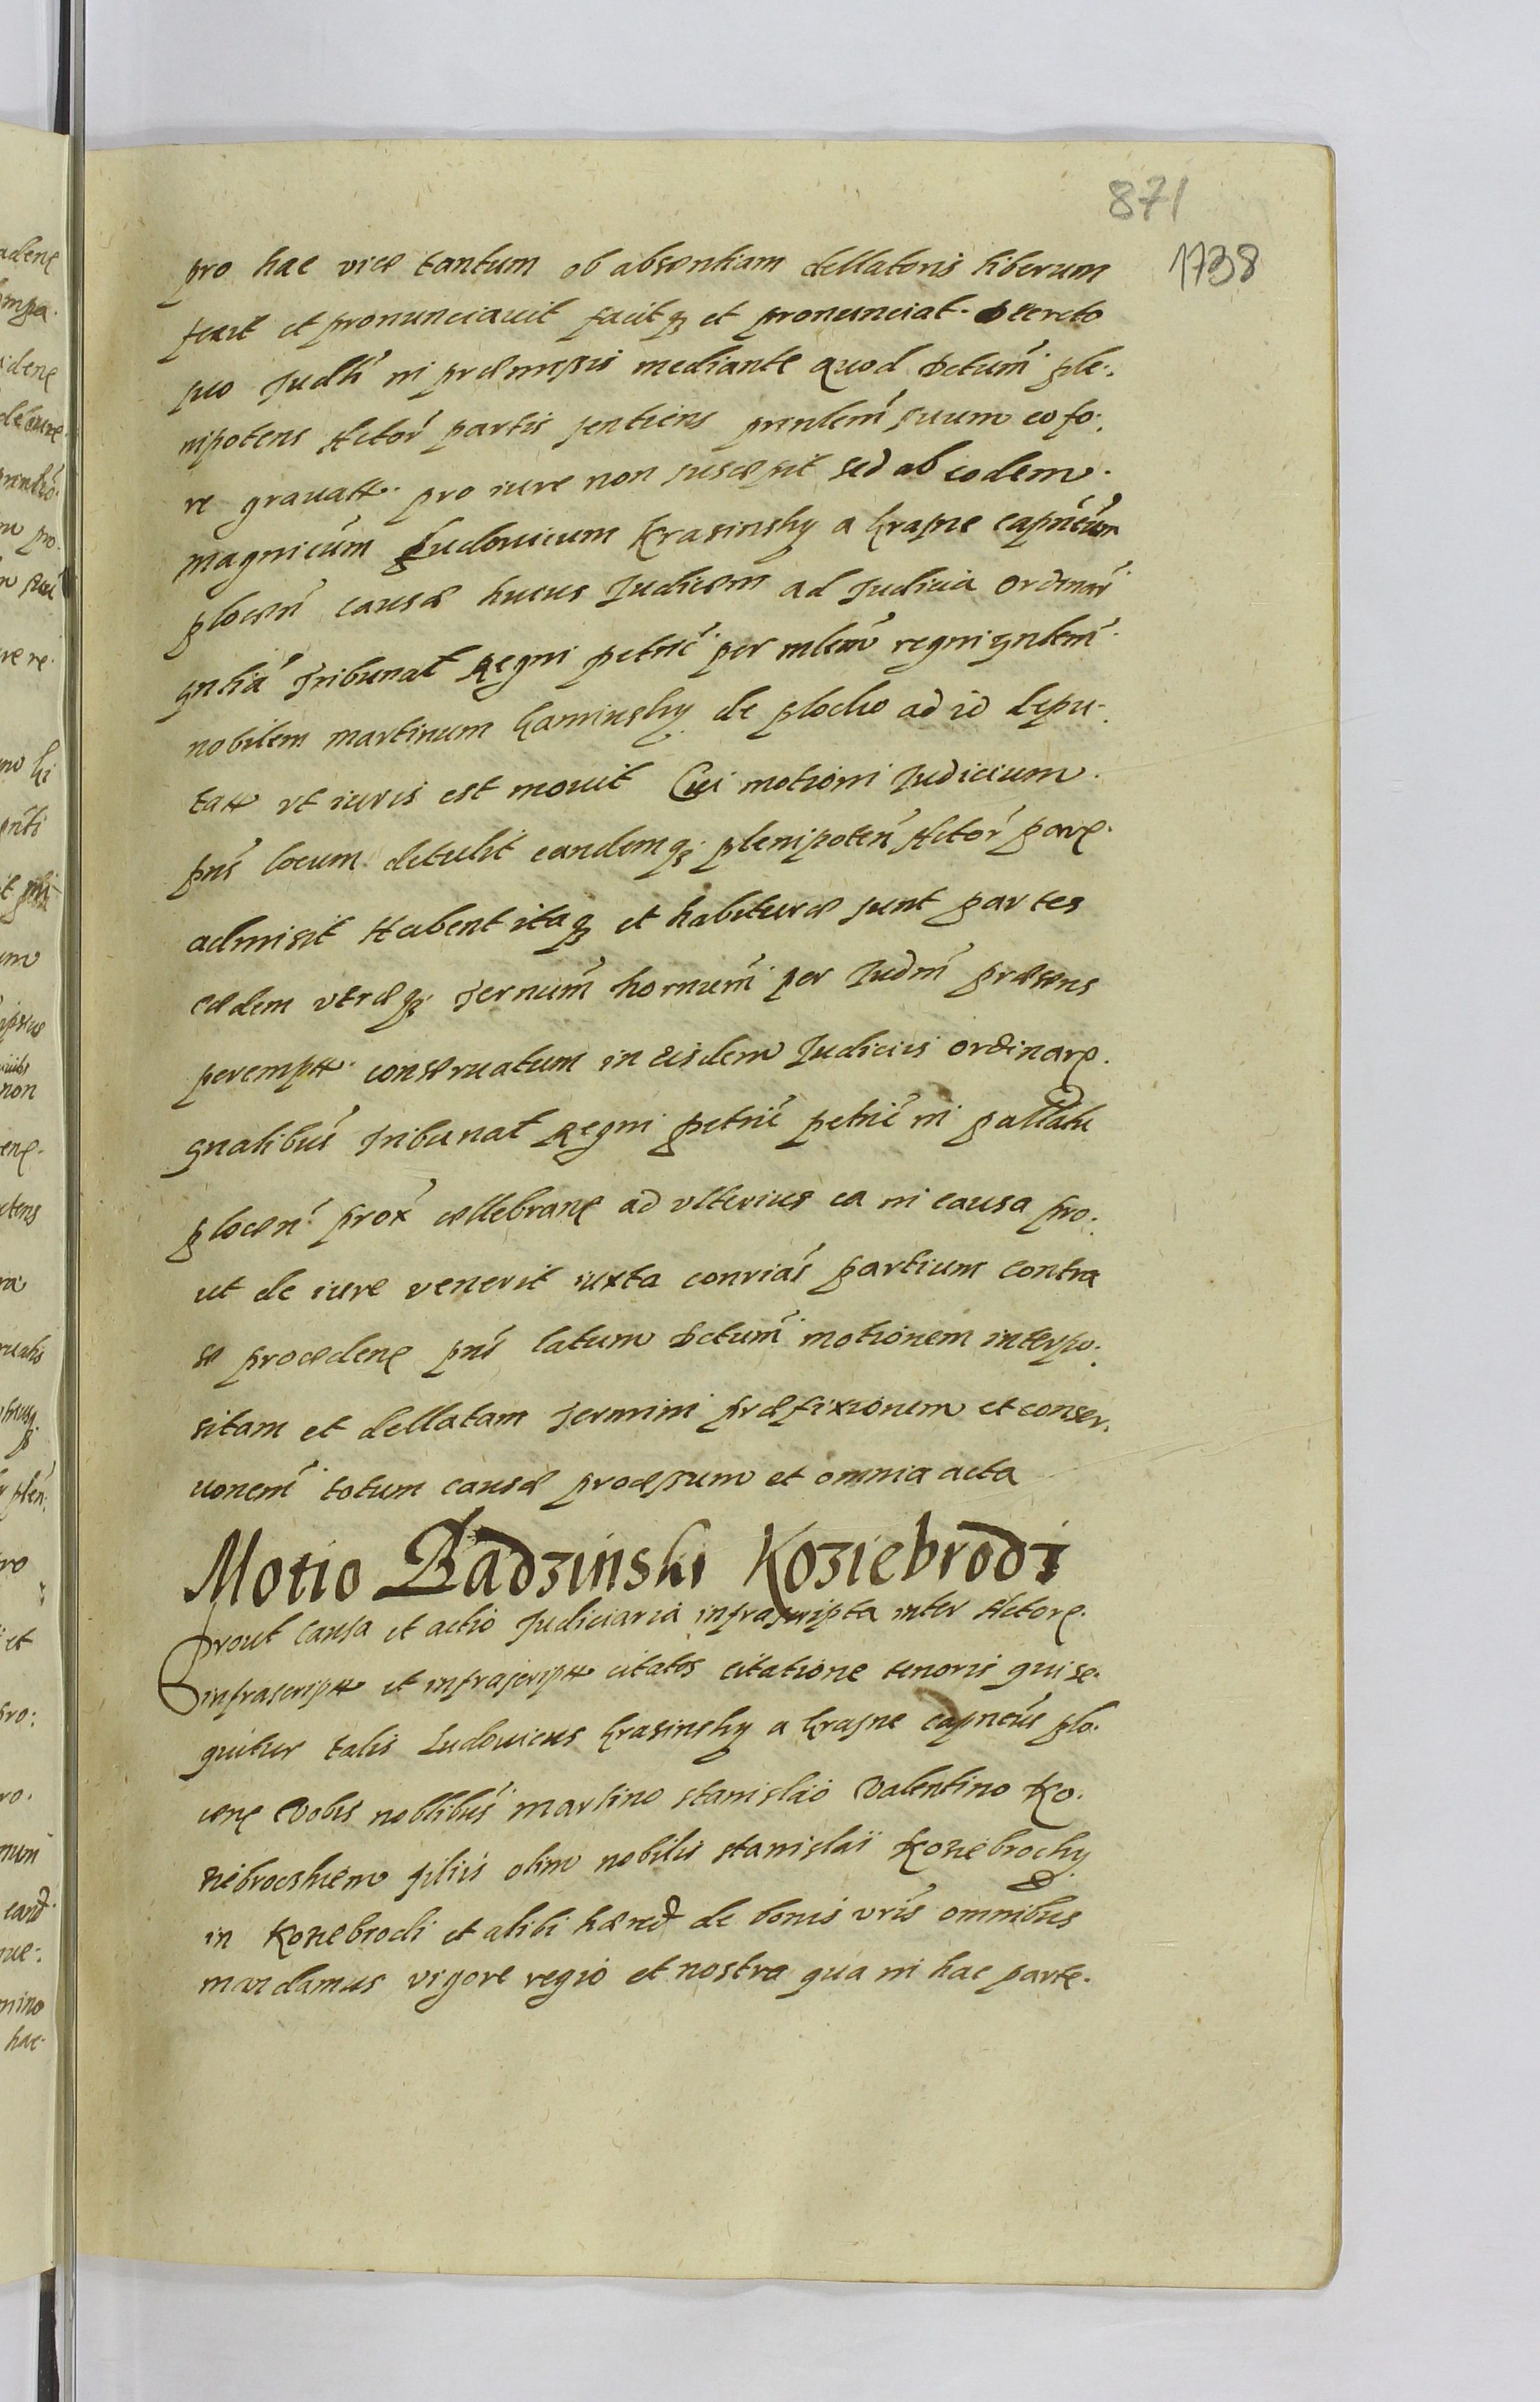 871
1738
pro hac vice tantum ob absentiam dellatoris liberum
fecit et pronunciauit facitq3 et pronunciat. Decreto
suo Judli in præmissis mediante quod Dctum ple.
nipotens Actor partis sentiens prinlem suum eo fo.
re grauatt. pro iure non suscepit sed ab eodem.
magnicum Ludouicum Krasinsky a Krasne capneum
plocen causæ huius Judicem ad Judicia ordinar
gnlia Tribunal Regni petric per mlem regni gnlem
nobilem martinum Kaminsky de plocko ad id depu-
tatt vt iuris est mouit Cui motioni Judicium.
pns locum detulit eandemq3 plenipoten Actor parę.
admisit Habent itaq3 et habituræ sunt partes
eædem vtræq3 Ternum hornum per Judm præsens
perempt. conseruatum in eisdem Judiciis ordinarę.
gnalibus Tribunal Regni petric petric in pallatu
plocen prox cellebranę ad vlterius ea in causa pro.
ut de iure venerit iuxta conrias partium contra
se procedenę pns latum Dctum motionem interpo.
sitam et dellatam Termini præfixionem et conser.
uonem totum causæ processum et omnia acta
Motio Badzinski Koziebrodi
Prout Causa et actio Judiciaria infrascripta inter Actorę.
infrascriptt et infrascriptt citatos citatione tenoris qui se.
quitur talis Ludouicus Krasinsky a Krasne capneus plo.
cenę Vobis noblibus martino stanislao Valentino Ko.
ziebrockiem filiis olim nobilis stanislaï Koziebrocky
in Koziebrodi et alibi hæred de bonis vris omnibus
mandamus vigore regio et nostra qua in hac parte.